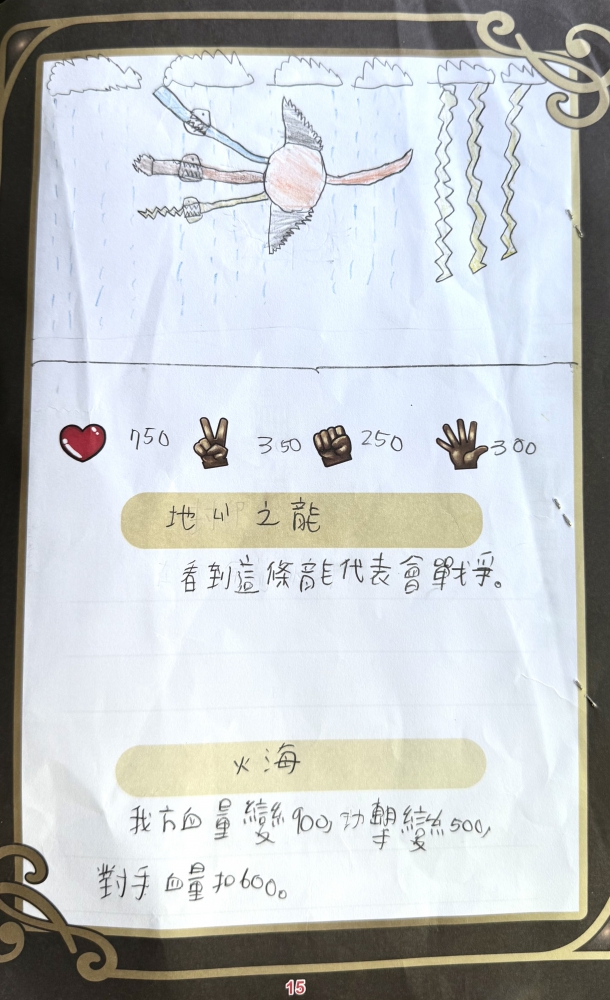 750 350 250 300
地心之龍
看到這條龍代表會戰爭。
火海
我方血量變900,功擊變500,
對手血量扣600。
15